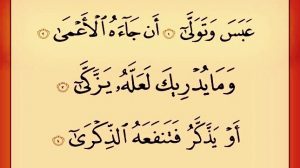 عَبَسَ وَتَوَلَّىٰٓ ١ أَن جَآءَهُ ٱلْأَعْمَىٰ ٢
وَمَا يُدْرِيكَ لَعَلَّهُۥ يَزَّكَّىٰٓ ٣
أَوْ يَذَّكَّرُ فَتَنفَعَهُ ٱلذِّكْرَىٰٓ ٤